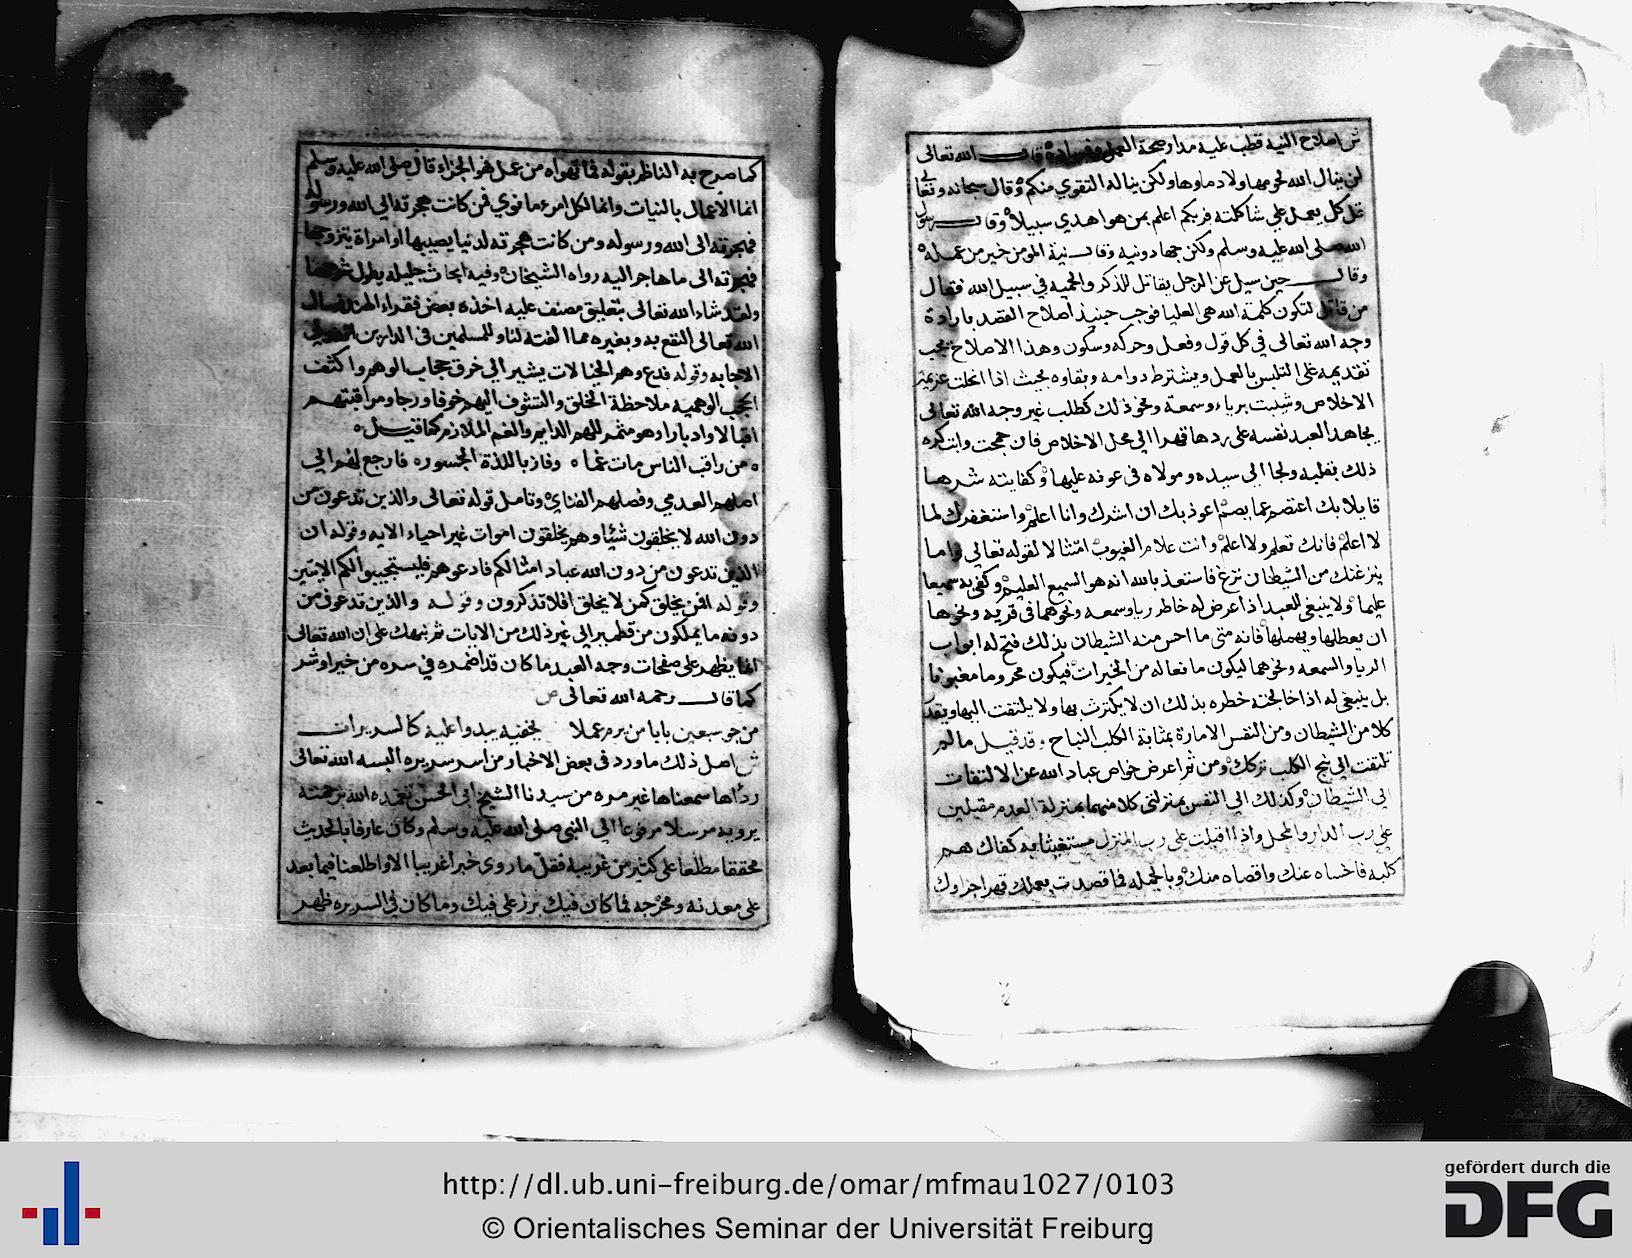 ش اصلاح النية قطب عليه مدار صحة العمل وفساده قال الله تعالى
لن ينال الله لحومها ولا دماوها ولكن يناله التقوي منكم وقال سبحانه وتعالى
قل كل يعمل علي شاكلته فربكم اعلم بمن هو اهدي سبيلا وقال رسول
الله صلى الله عليه وسلم ولكن جهاد ونيه وقال نية المومن خير من عمله
وقال حين سيل عن الرجل يقاتل للذكر والحميه في سبيل الله فقال
من قاتل لتكون كلمة الله هي العليا فوجب حينيذ اصلاح القصد بارادة
وجه الله تعالى في كل قول وفعل وحركه وسكون وهذا الاصلاح يجب
تقديمه على التلبس بالعمل ويشترط دوامه وبقاوه بحيث اذا انحلت عزيمة
الاخلاص وشيبت برياء وسمعة ونحو ذلك كطلب غير وجه الله تعالى
يجاهد العبد نفسه على ردها قهرا الي محل الاخلاص فان جمحت وابت كره
ذلك بقلبه ولجا الى سيده ومولاه في عونه عليها وكفايته شرها
قايلا بك اعتصم عما يصم اعوذ بك ان اشرك وانا اعلم واستغفرك لما
لا اعلم فانك تعلم ولا اعلم وانت علام الغيوب امتثالا لقوله تعالي واما
ينزغنك من الشيطان نزغ فاستعذ بالله انه هو السميع العليم وكفى به سميعا
عليما ولا ينبغي للعبد اذا عرض له خاطر ريا وسمعه ونحوهما في قربه ونحوها
ان يعطلها ويهملها فانه متى ما احس منه الشيطان بذلك فتح له ابواب
الريا والسمعه ونحوهما ليكون مانعا له من الخيرات فيكون محروما مغبونا
بل ينبغي له اذا خالجته خطره بذلك ان لا يكترث بها ولا يلتفت اليها ويعد
كلا من الشيطان ومن النفس الامارة بمثابة الكلب النباح وقد قيل مالم
تلتفت الي نبح الكلب تركك ومن ثم اعرض خواص عباد الله عن الالتفات
الي الشيطان وكذلك الي النفس بمنزلتي كلا منهما بمنزلة العدم مقبلين
علي رب الدار والمحل واذا اقبلت على رب المنزل مستغيثا به كفاك هم
كلبه فاخساه عنك واقصاه منك وبالجمله فما قصدت بعملك فهو اجر اوك
كما صرح به الناظم بقوله فما تهواه من عمل فهو الجزاء قال صلى الله عليه وسلم
انما الاعمال بالنيات وانما لكل امرء ما نوي فمن كانت هجرته الي الله ورسوله
فهجرته الى الله ورسوله ومن كانت هجرته لدنيا يصيبها او امراة يتزوجها
فهجرته الى ما هاجر اليه رواه الشيخان وفيه ابحاث جليله يطول شرحها
ولقد شاء الله تعالى بتعليق مصنف عليه اخذه بعض فقراء الهند فسال
الله تعالى النفع به وبغيره مما الفته لنا وللمسلمين في الدارين
الاجابه وقوله فدع وهم الخيالات يشير الي خرق حجاب الوهم واكثف
الحجب الوهميه ملاحظة الخلق والتشوف اليهم خوفا ورجا ومراقبتهم
اقبالا وادبارا وهو مثمر للهم الدايم والغم الملازم كما قيل
من راقب الناس مات غما وفاز باللذة الجسور فارجع بهم الي
اصلهم العدمي وفصلهم الفنايي وتامل قوله تعالى والذين تدعون من
دون الله لا يخلقون شيئا وهم يخلقون اموات غير احياء الايه وقوله ان
الذين تدعون من دون الله عباد امثالكم فادعوهم فليستجيبوا لكم الايتين
وقوله افمن يخلق كمن لا يخلق افلا تذكرون وقوله والذين تدعون من
دونه ما يملكون من قطمير الى غير ذلك من الايات ثم نبهك على ان الله تعالى
انما يظهر على صفحات وجه العبد ما كان قد اضمره في سره من خير او شر
كما قال رحمه الله تعالى ص
من جو سبعين بابا من يرم عملا يخفيه يبدوا عليه كالسريرات
ش اصل ذلك ما ورد في بعض الاخبار من اسر سريره البسه الله تعالى
رداها سمعناها غير مره من سيدنا الشيخ ابي الحسن تغمده الله برحمته
يرويه مرسلا مرفوعا الي النبي صلى الله عليه وسلم وكان عارفا بالحديث
محققا مطلعا على كثير من غريبه فقل ما روى خبرا غريبا الا واطلعنا فيما بعد
على معدنه ومخرجه فما كان فيك برز على فيك وما كان في السريره ظهر
http://dl.ub.uni-freiburg.de/omar/mfmau1027/0103
© Orientalisches Seminar der Universität Freiburg
gefördert durch die
DFG